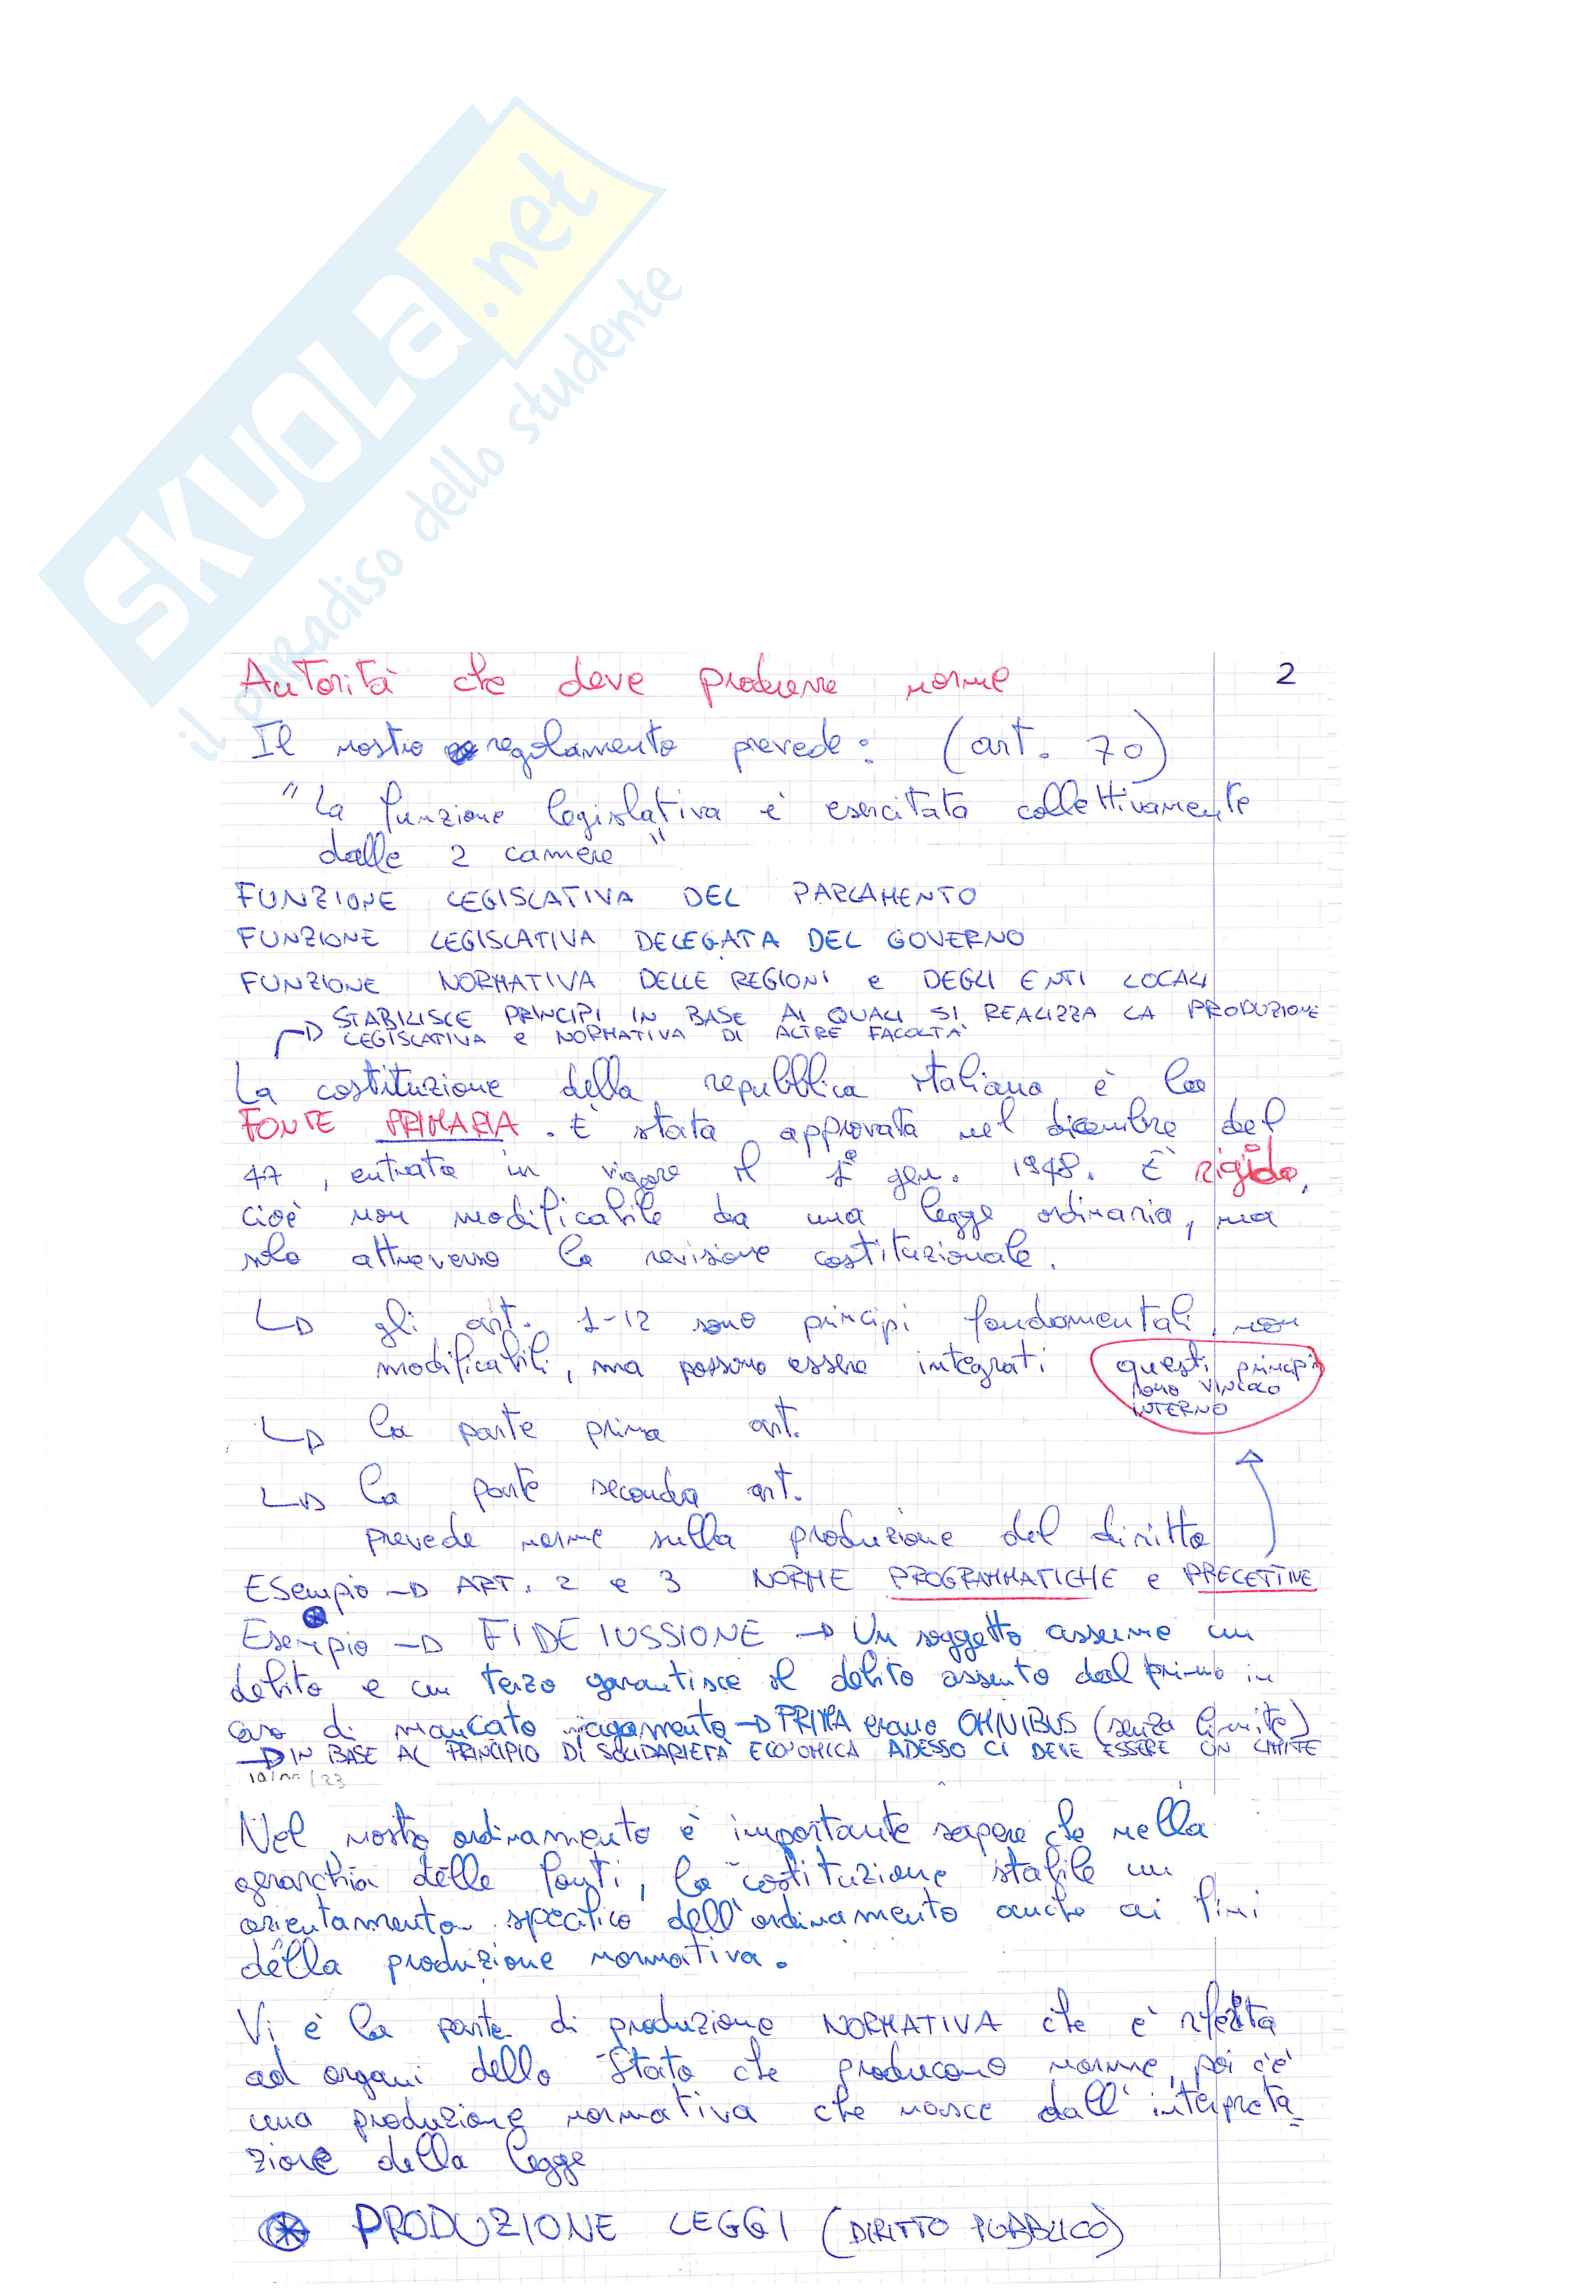 SKUOLa.net
il paradiso dello studente
2
Autorità che deve produrre norme
Il nostro regolamento prevede: (art. 70)
"La funzione legislativa è esercitata collettivamente
dalle 2 camere"
FUNZIONE LEGISLATIVA DEL PARLAMENTO
FUNZIONE LEGISLATIVA DELEGATA DEL GOVERNO
FUNZIONE NORMATIVA DELLE REGIONI e DEGLI ENTI LOCALI
STABILISCE PRINCIPI IN BASE AI QUALI SI REALIZZA LA PRODUZIONE
LEGISLATIVA e NORMATIVA DI ALTRE FACOLTÀ
La costituzione della repubblica italiana è la
FONTE PRIMARIA. È stata approvata nel dicembre del
47, entrata in vigore il 1° gen. 1948. È rigida,
cioè non modificabile da una legge ordinaria, ma
solo attraverso la revisione costituzionale.
gli art. 1-12 sono principi fondamentali, non
modificabili, ma possono essere integrati
questi principi
sono VINCOLO
INTERNO
la parte prima art.
la parte seconda art.
prevede norme sulla produzione del diritto
ESempio → ART. 2 e 3 NORME PROGRAMMATICHE e PRECETTIVE
Esempio → FIDEIUSSIONE → Un soggetto assume un
debito e un terzo garantisce il debito assunto dal primo in
caso di mancato pagamento → PRIMA erano OMNIBUS (senza limite)
→ IN BASE AL PRINCIPIO DI SOLIDARIETÀ ECONOMICA ADESSO CI DEVE ESSERE UN LIMITE
Nel nostro ordinamento è importante sapere che nella
gerarchia delle fonti, la costituzione stabile un
orientamento specifico dell'ordinamento anche ai fini
della produzione normativa.
Vi è la parte di produzione NORMATIVA che è riferita
ad organi dello Stato che producono norme, poi c'è
una produzione normativa che nasce dall'interpreta
zione della legge
PRODUZIONE LEGGI (DIRITTO PUBBLICO)